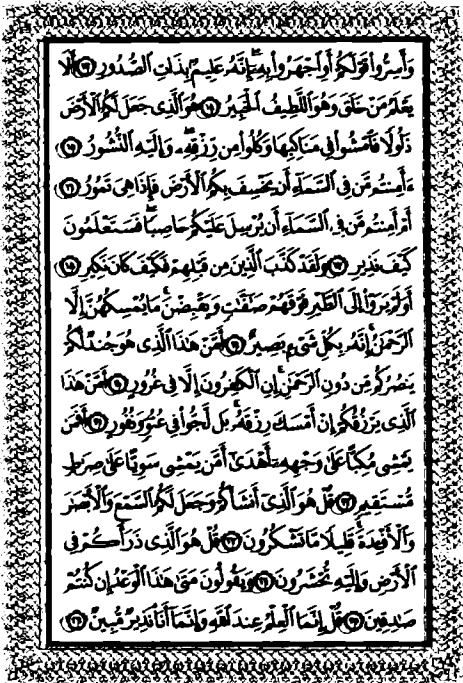 وَأَسِرُّوا۟ قَوْلَكُمْ أَوِ ٱجْهَرُوا۟ بِهِۦٓ ۖ إِنَّهُۥ عَلِيمٌۢ بِذَاتِ ٱلصُّدُورِ ١٣ أَلَا
يَعْلَمُ مَنْ خَلَقَ وَهُوَ ٱللَّطِيفُ ٱلْخَبِيرُ ١٤ هُوَ ٱلَّذِى جَعَلَ لَكُمُ ٱلْأَرْضَ
ذَلُولًا فَٱمْشُوا۟ فِى مَنَاكِبِهَا وَكُلُوا۟ مِن رِّزْقِهِۦ ۖ وَإِلَيْهِ ٱلنُّشُورُ ١٥
ءَأَمِنتُم مَّن فِى ٱلسَّمَآءِ أَن يَخْسِفَ بِكُمُ ٱلْأَرْضَ فَإِذَا هِىَ تَمُورُ ١٦
أَمْ أَمِنتُم مَّن فِى ٱلسَّمَآءِ أَن يُرْسِلَ عَلَيْكُمْ حَاصِبًا ۖ فَسَتَعْلَمُونَ
كَيْفَ نَذِيرِ ١٧ وَلَقَدْ كَذَّبَ ٱلَّذِينَ مِن قَبْلِهِمْ فَكَيْفَ كَانَ نَكِيرِ ١٨
أَوَلَمْ يَرَوْا۟ إِلَى ٱلطَّيْرِ فَوْقَهُمْ صَـٰٓفَّـٰتٍ وَيَقْبِضْنَ ۚ مَا يُمْسِكُهُنَّ إِلَّا
ٱلرَّحْمَـٰنُ ۚ إِنَّهُۥ بِكُلِّ شَىْءٍۭ بَصِيرٌ ١٩ أَمَّنْ هَـٰذَا ٱلَّذِى هُوَ جُندٌ لَّكُمْ
يَنصُرُكُم مِّن دُونِ ٱلرَّحْمَـٰنِ ۚ إِنِ ٱلْكَـٰفِرُونَ إِلَّا فِى غُرُورٍ ٢٠ أَمَّنْ هَـٰذَا
ٱلَّذِى يَرْزُقُكُمْ إِنْ أَمْسَكَ رِزْقَهُۥ ۚ بَل لَّجُّوا۟ فِى عُتُوٍّ وَنُفُورٍ ٢١ أَفَمَن
يَمْشِى مُكِبًّا عَلَىٰ وَجْهِهِۦٓ أَهْدَىٰٓ أَمَّن يَمْشِى سَوِيًّا عَلَىٰ صِرَٰطٍ
مُّسْتَقِيمٍ ٢٢ قُلْ هُوَ ٱلَّذِىٓ أَنشَأَكُمْ وَجَعَلَ لَكُمُ ٱلسَّمْعَ وَٱلْأَبْصَـٰرَ
وَٱلْأَفْـِٔدَةَ ۖ قَلِيلًا مَّا تَشْكُرُونَ ٢٣ قُلْ هُوَ ٱلَّذِى ذَرَأَكُمْ فِى
ٱلْأَرْضِ وَإِلَيْهِ تُحْشَرُونَ ٢٤ وَيَقُولُونَ مَتَىٰ هَـٰذَا ٱلْوَعْدُ إِن كُنتُمْ
صَـٰدِقِينَ ٢٥ قُلْ إِنَّمَا ٱلْعِلْمُ عِندَ ٱللَّهِ وَإِنَّمَآ أَنَا۠ نَذِيرٌ مُّبِينٌ ٢٦